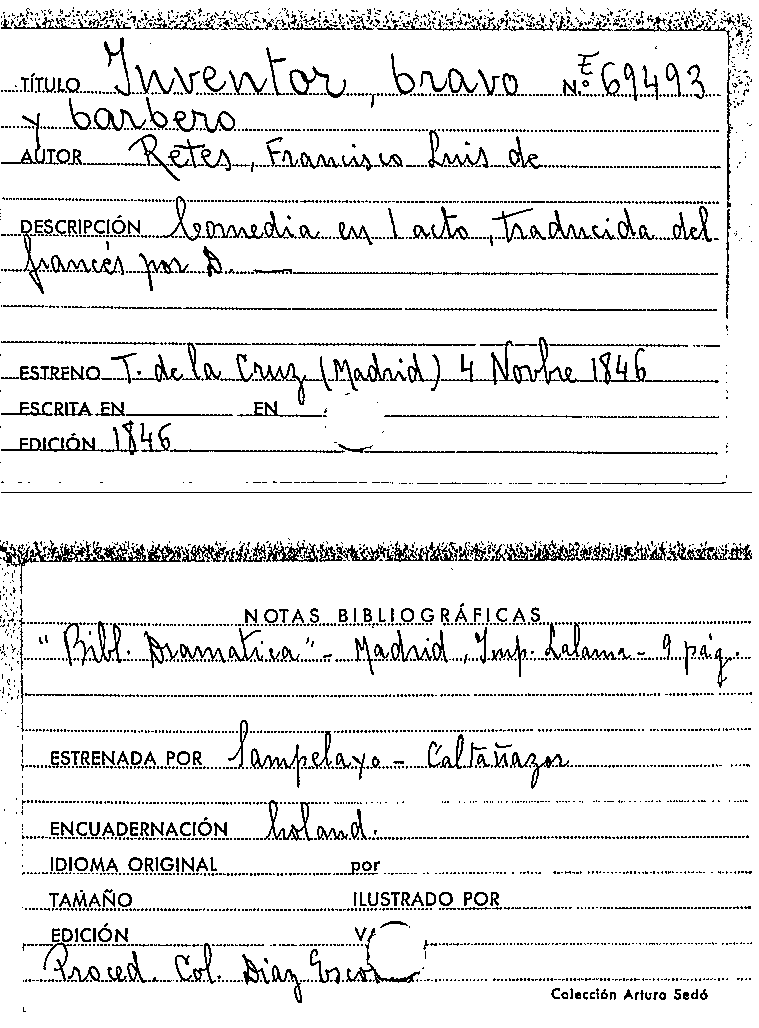 TÍTULO Inventor, bravo N.º E 69493
y barbero
AUTOR Retes, Francisco Luis de
DESCRIPCIÓN Comedia en 1 acto, traducida del
francés por D. —
ESTRENO T. de la Cruz (Madrid) 4 Novbre 1846
ESCRITA EN EN
EDICIÓN 1846
NOTAS BIBLIOGRÁFICAS
"Bibl. Dramatica" - Madrid, Imp. Lalama - 9 pág.
ESTRENADA POR Sampelayo - Caltañazor
ENCUADERNACIÓN holand.
IDIOMA ORIGINAL por
TAMAÑO ILUSTRADO POR
EDICIÓN
Proced. Col. Díaz
Colección Arturo Sedó